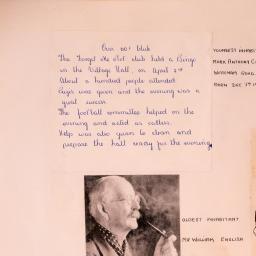 Over 60's Club
The Forget Me Not club held a Bingo
in the Village Hall, on April 2nd
About a hundred people attended
and the evening was a
great success
The football committee helped on the
evening and acted as callers.
Help was also given to clean and
prepare the hall ready for the evening
YOUNGEST INHABIT
MARK ANTHONY C
BORN DEC
OLDEST INHABITANT
MR WILLIAM ENGLISH